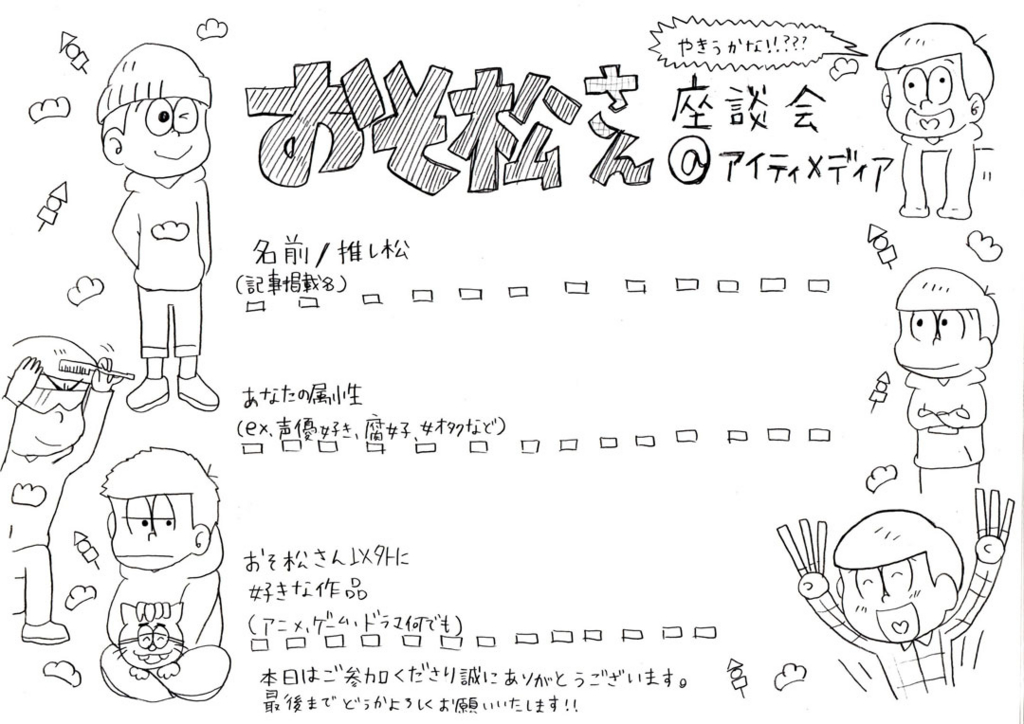 やきうかな!!???
おそ松さん
座談会
@アイティメディア
名前/推し松
(記事掲載名)
あなたの属性
(ex、声優好き、腐女子、女オタクなど)
おそ松さん以外に
好きな作品
(アニメ、ゲーム、ドラマ何でも)
本日はご参加くださり誠にありがとうございます。
最後までどうかよろしくお願いいたします!!